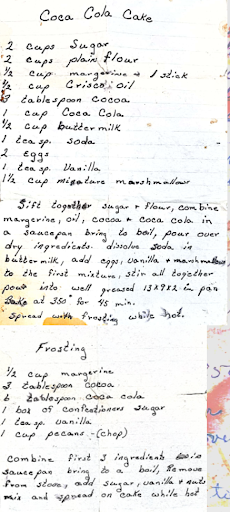 Coca Cola Cake
2 cups Sugar
2 cups plain flour
1/2 cup margerine = 1 stick
1/2 cup Crisco Oil
3 tablespoon Cocoa
1 cup Coca Cola
1/2 cup buttermilk
1 teasp. soda
2 eggs
1 teasp. Vanilla
1 1/2 cup miniature marshmallow
Sift together sugar + flour, combine
margerine, oil, cocoa + coca cola in
a saucepan bring to boil, pour over
dry ingredients. dissolve soda in
buttermilk, add eggs, vanilla + marshmallow
to the first mixture, stir all together
pour into well greased 13x9x2 in pan
Bake at 350° for 45 min.
Spread with frosting while hot.
Frosting
1/2 cup margerine
3 tablespoon cocoa
6 tablespoon coca cola
1 box of confectioners sugar
1 teasp. vanilla
1 cup pecans - (chop)
Combine first 3 ingredients in
saucepan bring to a boil, Remove
from stove, add sugar, vanilla + nuts
mix and spread on cake while hot